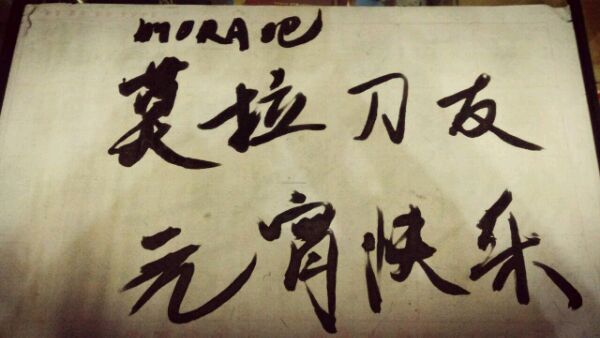 MORA吧
莫拉刀友
元宵快乐